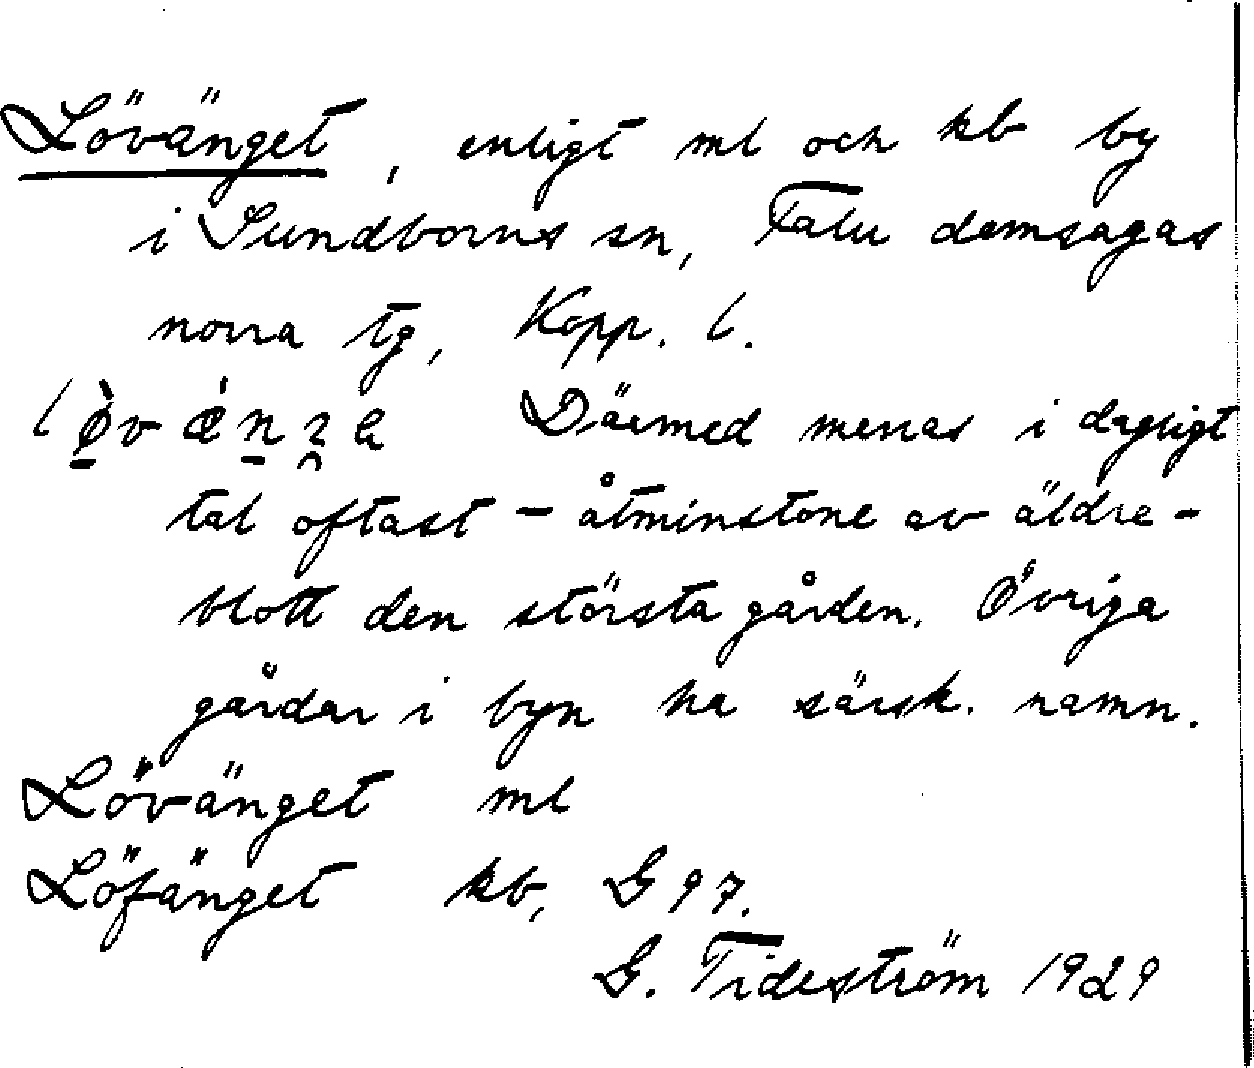 Lövänget, enligt ml och kb by
i Sundborns sn, Falu domsagas
norra tg, Kopp. l.
Därmed menas i dagligt
tal oftast - åtminstone av äldre -
blott den största gården. Övriga
gårdar i byn ha särsk. namn.
Lövänget ml
Löfänget kb, G 97.
G. Tideström 1929